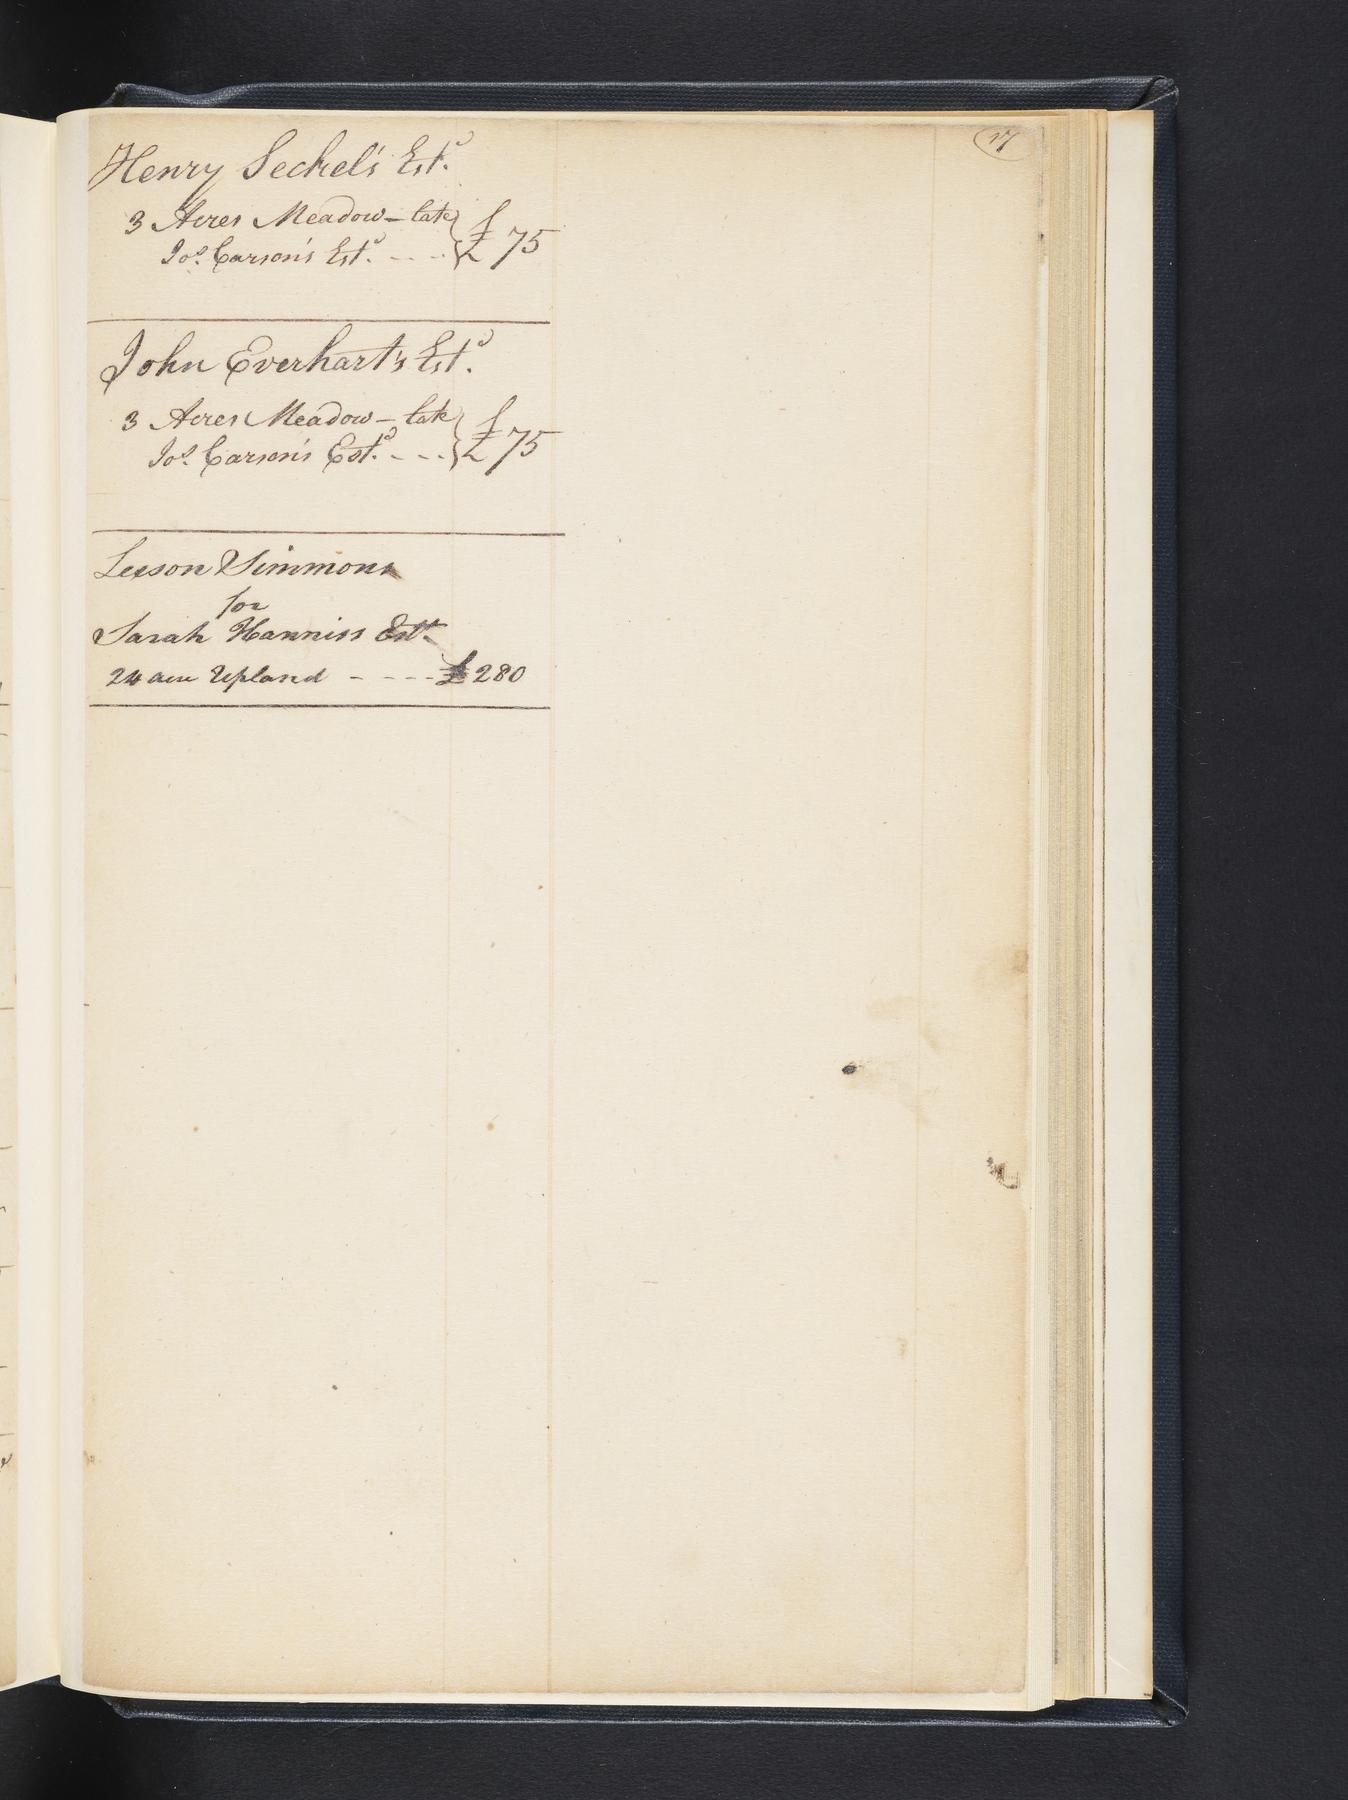 17
Henry Seckel's Est.e
3 Acres Meadow - late
Jos. Carson's Est.e - - - } £ 75
John Everhart's Est.e
3 Acres Meadow - late
Jos. Carson's Est.e - - - } £ 75
Leeson Simmons
for
Sarah Hanniss Estt.
24 acre Upland - - - - £ 280